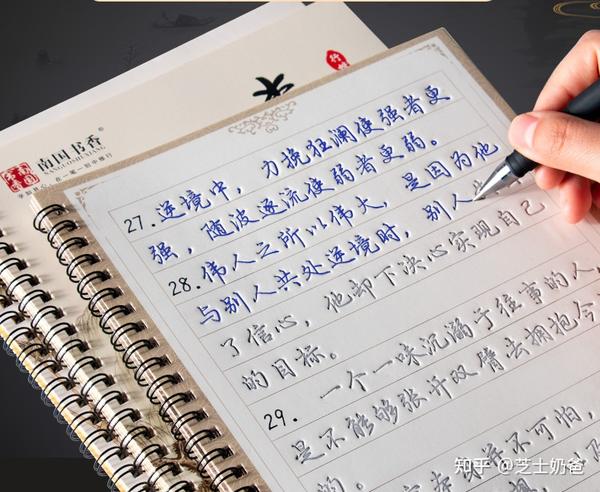 南国书香®
NANGUOSHUXIANG
27.逆境中，力挽狂澜使强者更
强，随波逐流使弱者更弱。
28.伟人之所以伟大，是因为他
与别人共处逆境时，别人
了信心，他却下决心实现自己
的目标。
29.一个一味沉溺于往事的人，
是不能够张开双臂去拥抱今
不可怕，
知乎 @芝士奶爸